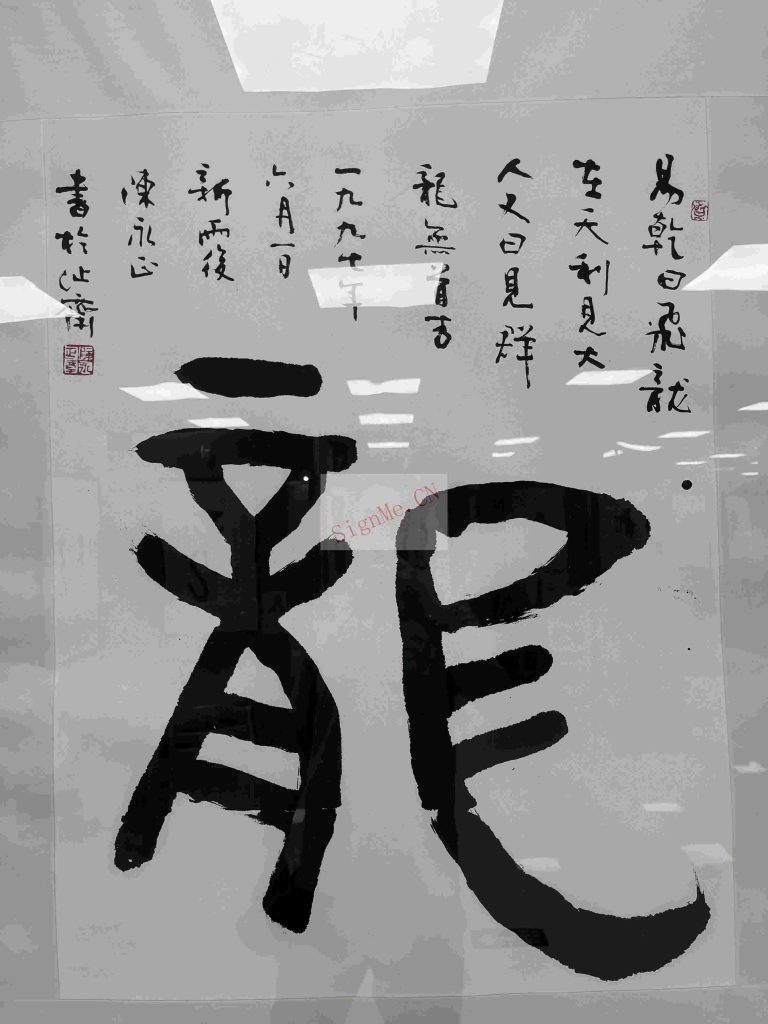 易乾曰飛龍
在天利見大
人又曰見群
龍無首吉
一九九七年
六月一日
新雨後
陳永正
書於沚齋
龍
SignMe.CN